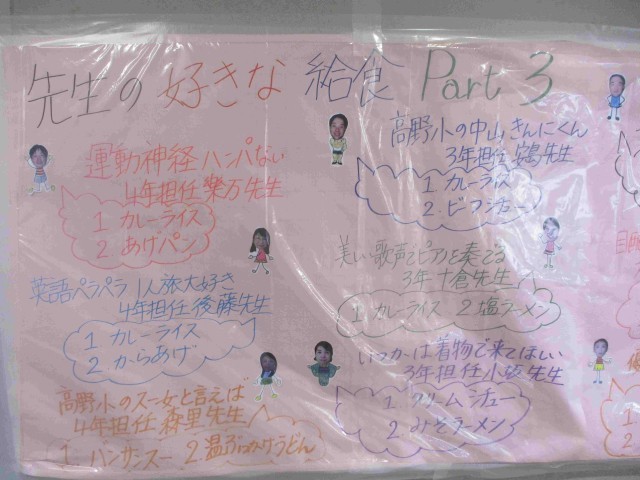 先生の好きな 給食 Part 3
運動神経ハンパない
4年担任 樂万先生
1 カレーライス
2 あげパン
英語ペラペラ 1人旅大好き
4年担任 後藤先生
1 カレーライス
2 からあげ
高野小のスー女と言えば
4年担任 森里先生
1. バンサンスー 2 温ぶっかけうどん
高野小の中山きんにくん
3年担任 鶴先生
1 カレーライス
2. ビーフシチュー
美しい歌声でピアノを奏でる
3年 十倉先生
1 カレーライス 2 塩ラーメン
いつかは着物で来てほしい
3年担任 小坂先生
1 クリームシチュー
2 みそラーメン